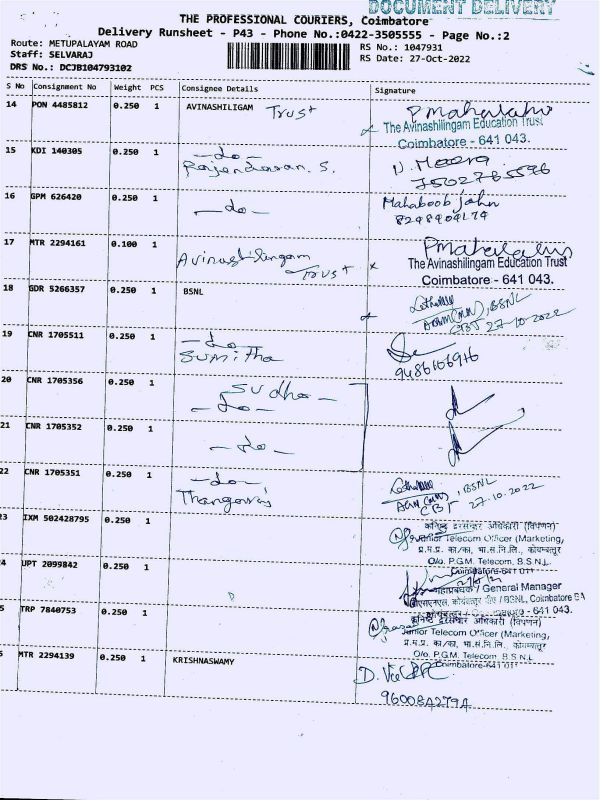 DOCUMENT DELIVERY
THE PROFESSIONAL COURIERS, Coimbatore
Delivery Runsheet - P43 - Phone No.:0422-3505555 - Page No.:2
Route: METUPALAYAM ROAD
Staff: SELVARAJ
DRS No.: DCJB104793102
RS No.: 1047931
RS Date: 27-Oct-2022
S No Consignment No Weight PCS Consignee Details Signature
14 PON 4485812 0.250 1 AVINASHILIGAM Trust
PMahalakshmi
The Avinashilingam Education Trust
Coimbatore - 641 043.
15 KDI 140305 0.250 1 -do-
Rajendaran. S.
N. Meera
7502785596
16 GPM 626420 0.250 1 -do-
Mahaboob john
8248909174
17 MTR 2294161 0.100 1 Avinashilingam Trust
The Avinashilingam Education Trust
Coimbatore - 641 043.
18 GDR 5266357 0.250 1 BSNL
BSNL
CBT 27-10-2022
19 CNR 1705511 0.250 1 -do-
Sumitha
9486106916
20 CNR 1705356 0.250 1 Sudha -
-do-
21 CNR 1705352 0.250 1
-do-
22 CNR 1705351 0.250 1 -do-
Thangaraj
, BSNL
CBT 27.10.2022
23 IXM 502428795 0.250 1
कनिष्ठ दूरसंचार अधिकारी (विपणन)
Junior Telecom Officer (Marketing,
प्र.म.प्र. का/का, भा.सं.नि.लि., कोयम्बत्तूर
O/o. P.G.M. Telecom, B.S.N.L.
Coimbatore-641 011
24 UPT 2099842 0.250 1
महाप्रबंधक / General Manager
/ BSNL, Coimbatore BA
- 641 043.
25 TRP 7840753 0.250 1
कनिष्ठ दूरसंचार अधिकारी (विपणन)
Junior Telecom Officer (Marketing,
प्र.म.प्र. का/का, भा.सं.नि.लि., कोयम्बत्तूर
O/o. P.G.M. Telecom B.S.N.L
Coimbatore-641 011
MTR 2294139 0.250 1 KRISHNASWAMY
960084279A